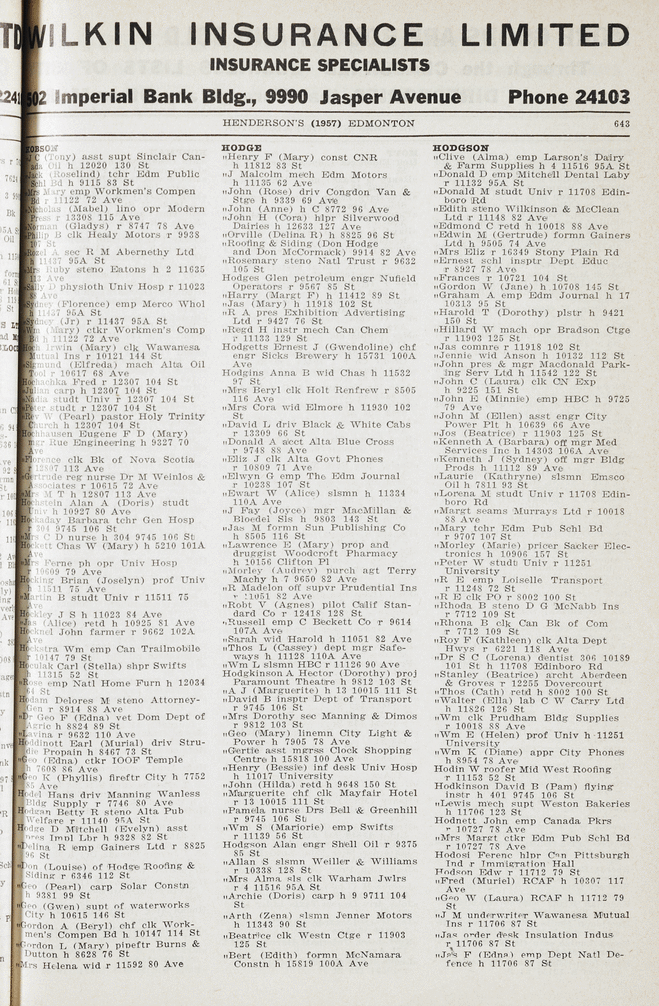 WILKIN INSURANCE LIMITED
INSURANCE SPECIALISTS
502 Imperial Bank Bldg., 9990 Jasper Avenue Phone 24103
HENDERSON'S (1957) EDMONTON 643
HOBSON
J C (Tony) asst supt Sinclair Can-
ada Oil h 12020 130 St
Jack (Roselind) tchr Edm Public
Schl Bd h 9115 83 St
Mrs Mary emp Workmen's Compen
Bd r 11122 72 Ave
Nicholas (Mabel) lino opr Modern
Press r 13308 115 Ave
Norman (Gladys) r 8747 78 Ave
Philip B clk Healy Motors r 9938
107 St
Rozel A sec R M Abernethy Ltd
h 11437 95A St
Mrs Ruby steno Eatons h 2 11635
Ave
Sally D physioth Univ Hosp r 11023
Ave
Sydney (Florence) emp Merco Whol
11437 95A St
Sydney (Jr) r 11437 95A St
Wm (Mary) ctkr Workmen's Comp
Bd h 11122 72 Ave
Irwin (Mary) clk Wawanesa
Mutual Ins r 10121 144 St
Sigmund (Elfreda) mach Alta Oil
Tool r 10617 68 Ave
Hochachka Fred r 12307 104 St
Julian carp h 12307 104 St
Nadia studt Univ r 12307 104 St
Peter studt r 12307 104 St
Rev W (Pearl) pastor Holy Trinity
Church h 12307 104 St
Hochhausen Eugene F D (Mary)
mgr Rue Engineering h 9327 70
Ave
Florence clk Bk of Nova Scotia
r 12807 113 Ave
Gertrude reg nurse Dr M Weinlos &
Associates r 10615 72 Ave
Mrs M T h 12807 113 Ave
Hochstein Alan A (Doris) studt
Univ h 10927 80 Ave
Hockaday Barbara tchr Gen Hosp
r 304 9745 106 St
Mrs C D nurse h 304 9745 106 St
Hockett Chas W (Mary) h 5210 101A
Ave
Mrs Ferne ph opr Univ Hosp
10609 79 Ave
Hocking Brian (Joselyn) prof Univ
h 11511 75 Ave
Martin B studt Univ r 11511 75
Ave
Hockley J S h 11023 84 Ave
Jas (Alice) retd h 10925 81 Ave
Hocknel John farmer r 9662 102A
Ave
Hockstra Wm emp Can Trailmobile
10147 79 St
Hoculak Carl (Stella) shpr Swifts
h 11315 52 St
Rose emp Natl Home Furn h 12034
64 St
Hodam Delores M steno Attorney-
Gen r 8914 88 Ave
Dr Geo F (Edna) vet Dom Dept of
Agric h 8824 89 St
Lavina r 9632 110 Ave
Hoddinott Earl (Murial) driv Stru-
die Propain h 8467 73 St
Geo (Edna) ctkr IOOF Temple
h 7608 86 Ave
Geo K (Phyllis) fireftr City h 7752
85 Ave
Hodel Hans driv Manning Wanless
Bldg Supply r 7746 80 Ave
Hodgan Betty R steno Alta Pub
Welfare r 11140 95A St
Hodge D Mitchell (Evelyn) asst
pres Impl Lbr h 9328 82 St
Delina R emp Gainers Ltd r 8825
96 St
Don (Louise) of Hodge Roofing &
Siding r 6346 112 St
Geo (Pearl) carp Solar Constn
h 9381 99 St
Geo (Gwen) supt of waterworks
City h 10615 146 St
Gordon A (Beryl) chf clk Work-
men's Compen Bd h 10147 114 St
Gordon L (Mary) pipeftr Burns &
Dutton h 8628 76 St
Mrs Helena wid r 11592 80 Ave
HODGE
„Henry F (Mary) const CNR
h 11812 83 St
„J Malcolm mech Edm Motors
h 11135 62 Ave
„John (Rose) driv Congdon Van &
Stge h 9339 69 Ave
„John (Anne) h C 8772 96 Ave
„John H (Cora) hlpr Silverwood
Dairies h 12633 127 Ave
„Orville (Delina R) h 8825 96 St
„Roofing & Siding (Don Hodge
and Don McCormack) 9914 82 Ave
„Rosemary steno Natl Trust r 9632
105 St
Hodges Glen petroleum engr Nufield
Operators r 9567 85 St
„Harry (Margt F) h 11412 89 St
„Jas (Mary) h 11918 102 St
„R A pres Exhibition Advertising
Ltd r 9427 76 St
„Regd H instr mech Can Chem
r 11133 129 St
Hodgetts Ernest J (Gwendoline) chf
engr Sicks Brewery h 15731 100A
Ave
Hodgins Anna B wid Chas h 11532
97 St
„Mrs Beryl clk Holt Renfrew r 8505
116 Ave
„Mrs Cora wid Elmore h 11930 102
St
„David L driv Black & White Cabs
r 13309 66 St
„Donald A acct Alta Blue Cross
r 9748 88 Ave
„Eliz J clk Alta Govt Phones
r 10809 71 Ave
„Elwyn G emp The Edm Journal
r 10238 107 St
„Ewart W (Alice) slsmn h 11334
110A Ave
„J Fay (Joyce) mgr MacMillan &
Bloedel Sls h 9803 143 St
„Jas M formn Sun Publishing Co
h 8505 116 St
„Lawrence E (Mary) prop and
druggist Woodcroft Pharmacy
h 10156 Clifton Pl
„Morley (Audrey) purch agt Terry
Machy h 7 9650 82 Ave
„R Madelon off supvr Prudential Ins
r 11051 82 Ave
„Robt V (Agnes) pilot Calif Stan-
dard Co r 12418 128 St
„Russell emp C Beckett Co r 9614
107A Ave
„Sarah wid Harold h 11051 82 Ave
„Thos L (Cassey) dept mgr Safe-
ways h 11128 110A Ave
„Wm L slsmn HBC r 11126 90 Ave
Hodgkinson A Hector (Dorothy) proj
Paramount Theatre h 9812 103 St
„A J (Marguerite) h 13 10015 111 St
„David B insptr Dept of Transport
r 9745 106 St
„Mrs Dorothy sec Manning & Dimos
r 9812 103 St
„Geo (Mary) linemn City Light &
Power h 7905 78 Ave
„Gertie asst mgrss Clock Shopping
Centre h 15818 100 Ave
„Henry (Bessie) inf desk Univ Hosp
h 11017 University
„John (Hilda) retd h 9648 150 St
„Marguerite chf clk Mayfair Hotel
r 13 10015 111 St
„Pamela nurse Drs Bell & Greenhill
r 9745 106 St
„Wm S (Marjorie) emp Swifts
r 11139 56 St
Hodgson Alan engr Shell Oil r 9375
85 St
„Allan S slsmn Weiller & Williams
r 10338 128 St
„Mrs Alma sls clk Warham Jwlrs
r 4 11516 95A St
„Archie (Doris) carp h 9 9711 104
St
„Arth (Zena) slsmn Jenner Motors
h 11343 90 St
„Beatrice clk Westn Ctge r 11903
125 St
„Bert (Edith) formn McNamara
Constn h 15819 100A Ave
HODGSON
„Clive (Alma) emp Larson's Dairy
& Farm Supplies h 4 11516 95A St
„Donald D emp Mitchell Dental Laby
r 11132 95A St
„Donald M studt Univ r 11708 Edin-
boro Rd
„Edith steno Wilkinson & McClean
Ltd r 11148 82 Ave
„Edmond C retd h 10018 88 Ave
„Edwin M (Gertrude) formn Gainers
Ltd h 9505 74 Ave
„Mrs Eliz r 16349 Stony Plain Rd
„Ernest schl insptr Dept Educ
r 8927 78 Ave
„Frances r 10721 104 St
„Gordon W (Jane) h 10708 145 St
„Graham A emp Edm Journal h 17
10313 95 St
„Harold T (Dorothy) plstr h 9421
150 St
„Hillard W mach opr Bradson Ctge
r 11903 125 St
„Jas comnre r 11918 102 St
„Jennie wid Anson h 10132 112 St
„John pres & mgr Macdonald Park-
ing Serv Ltd h 11542 122 St
„John C (Laura) clk CN Exp
h 9225 151 St
„John E (Minnie) emp HBC h 9725
79 Ave
„John M (Ellen) asst engr City
Power Plt h 10639 66 Ave
„Jos (Beatrice) r 11903 125 St
„Kenneth A (Barbara) off mgr Med
Services Inc h 14303 106A Ave
„Kenneth J (Sydney) off mgr Bldg
Prods h 11112 89 Ave
„Laurie (Kathryne) slsmn Emsco
Oil h 7811 93 St
„Lorena M studt Univ r 11708 Edin-
boro Rd
„Margt seams Murrays Ltd r 10018
88 Ave
„Mary tchr Edm Pub Schl Bd
r 9707 107 St
„Morley (Marie) pricer Sacker Elec-
tronics h 10906 157 St
„Peter W studt Univ r 11251
University
„R E emp Loiselle Transport
r 11248 72 St
„R E clk PO r 8002 100 St
„Rhoda B steno D G McNabb Ins
r 7712 109 St
„Rhona B clk Can Bk of Com
r 7712 109 St
„Roy F (Kathleen) clk Alta Dept
Hwys r 6221 118 Ave
„Dr S C (Lorena) dentist 306 10189
101 St h 11708 Edinboro Rd
„Stanley (Beatrice) archt Aberdeen
& Groves r 12255 Dovercourt
„Thos (Cath) retd h 8002 100 St
„Walter (Ella) lab C W Carry Ltd
h 11826 126 St
„Wm clk Prudham Bldg Supplies
r 10018 88 Ave
„Wm E (Helen) prof Univ h 11251
University
„Wm K (Diane) appr City Phones
h 8954 78 Ave
Hodin W roofer Mid West Roofing
r 11153 52 St
Hodkinson David B (Pam) flying
instr h 401 9745 106 St
„Lewis mech supt Weston Bakeries
h 11706 123 St
Hodnett John emp Canada Pkrs
r 10727 78 Ave
„Mrs Margt ctkr Edm Pub Schl Bd
r 10727 78 Ave
Hodosi Ferenc hlpr Can Pittsburgh
Ind r Immigration Hall
Hodson Edw r 11712 79 St
„Fred (Muriel) RCAF h 10307 117
Ave
„Geo W (Laura) RCAF h 11712 79
St
„J M underwriter Wawanesa Mutual
Ins r 11706 87 St
„Jas order desk Insulation Indus
r 11706 87 St
„Jas F (Edna) emp Dept Natl De-
fence h 11706 87 St